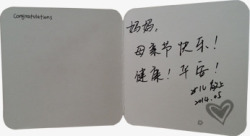 Congratulations
妈妈,
母亲节快乐!
健康!平安!
2014.05